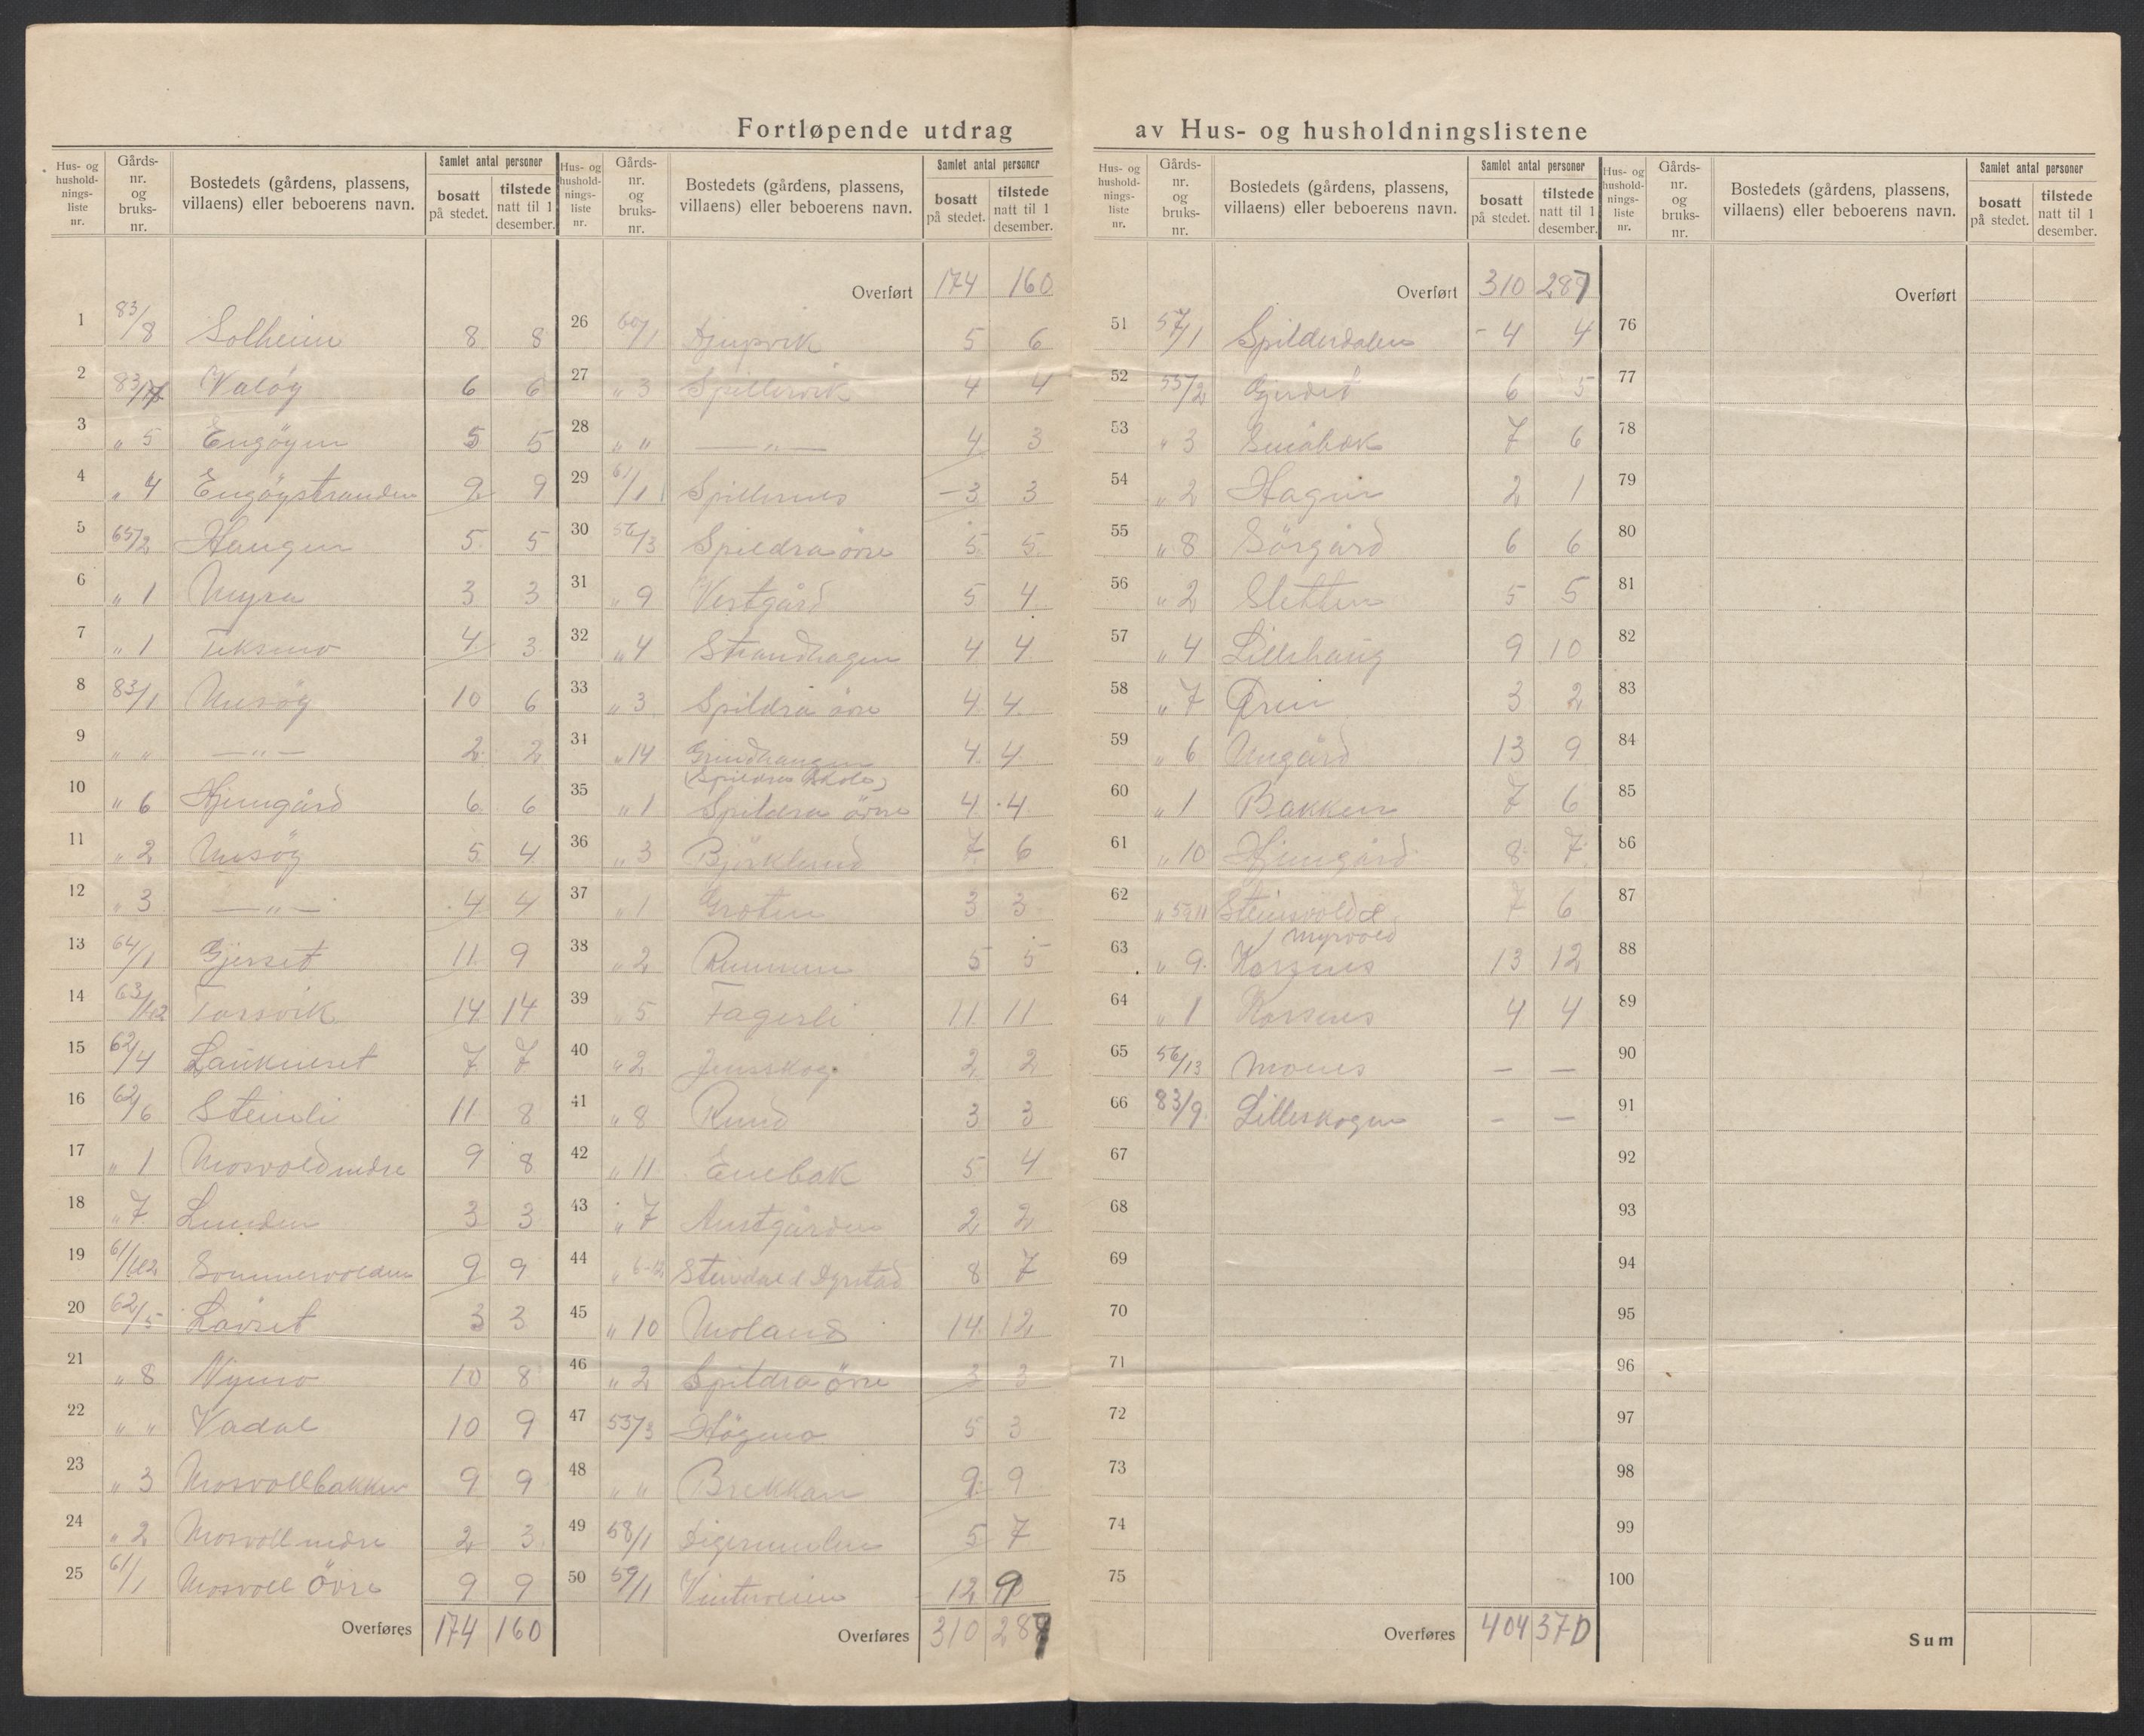 Fortløpende utdrag av Hus- og husholdningslistene
Hus- og husholdningsliste nr. | Gårds-nr. og bruks-nr. | Bostedets (gårdens, plassens, villaens) eller beboerens navn. | Samlet antal personer: bosatt på stedet. | tilstede natt til 1 desember.
1 83/8 Solheim 8 8
2 83/7 Valöy 6 6
3 " 5 Engöyen 5 5
4 " 4 Engöystranden 9 9
5 65/2 Haugen 5 5
6 " 1 Myra 3 3
7 " 1 Teksmo 4 3
8 83/1 Mesöy 10 6
9 " " — " — 2 2
10 " 6 Hjemgård 6 6
11 " 2 Mesöy 5 4
12 " 3 — " — 4 4
13 64/1 Gjerset 11 9
14 63/1,2 Torsvik 14 14
15 62/4 Laukneset 7 7
16 62/6 Steinli 11 8
17 " 1 Mosvold nedre 9 8
18 " 7 Lunden 3 3
19 61/1 Sommervolden 9 9
20 62/5 Lövset 3 3
21 " 8 Nymo 10 8
22 " " Vadal 10 9
23 " 3 Mosvollbakken 9 9
24 " 2 Mosvoll nedre 2 3
25 61/1 Mosvoll övre 9 9
Overføres 174 160
Hus- og husholdningsliste nr. | Gårds-nr. og bruks-nr. | Bostedets (gårdens, plassens, villaens) eller beboerens navn. | Samlet antal personer: bosatt på stedet. | tilstede natt til 1 desember.
Overført 174 160
26 60/1 Djupvik 5 6
27 " 3 Spillervik 4 4
28 " " — " — 4 3
29 61/1 Spillernes 3 3
30 56/3 Spildra övre 5 5
31 " 9 Vestgård 5 4
32 " 4 Strandhagen 4 4
33 " 3 Spildra övre 4 4
34 " 14 Grindhaugen 4 4
(Spildra Skole)
35 " 1 Spildra övre 4 4
36 " 3 Björklund 7 6
37 " 1 Groten 3 3
38 " 2 Rummen 5 5
39 " 5 Fagerli 11 11
40 " 2 Jensskog 2 2
41 " 8 Rund 3 3
42 " 11 Enebak 5 4
43 " 7 Austgården 2 2
44 " 6-12 Steindal & Dyrstad 8 7
45 " 10 Moland 14 12
46 " 2 Spildra övre 3 3
47 55/3 Högmo 5 3
48 " " Brekkan 9 9
49 58/1 Digermulen 5 7
50 59/1 Vinterveien 12 9
Overføres 310 287
Hus- og husholdningsliste nr. | Gårds-nr. og bruks-nr. | Bostedets (gårdens, plassens, villaens) eller beboerens navn. | Samlet antal personer: bosatt på stedet. | tilstede natt til 1 desember.
Overført 310 287
51 57/1 Spilderdalen 4 4
52 55/2 Gjerdet 6 5
53 " 3 Småbak 7 6
54 " 2 Hagen 2 1
55 " 8 Sörgård 6 6
56 " 2 Sletten 5 5
57 " 4 Lillehaug 9 10
58 " 7 Ören 3 2
59 " 6 Nygård 13 9
60 " 1 Bakken 7 6
61 " 10 Hjemgård 8 7
62 " 5&11 Steinsvold & 7 6
Myrvold
63 " 9 Korsnes 13 12
64 " 1 Korsnes 4 4
65 56/13 Mones — —
66 83/9 Lilleskogen — —
67
68
69
70
71
72
73
74
75
Overføres 404 370
Hus- og husholdningsliste nr. | Gårds-nr. og bruks-nr. | Bostedets (gårdens, plassens, villaens) eller beboerens navn. | Samlet antal personer: bosatt på stedet. | tilstede natt til 1 desember.
Overført
76
77
78
79
80
81
82
83
84
85
86
87
88
89
90
91
92
93
94
95
96
97
98
99
100
Sum